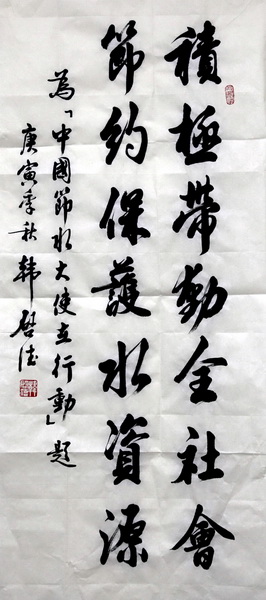 積極帶動全社會
節約保護水資源
為「中國節水大使在行動」題
庚寅季秋韩启德